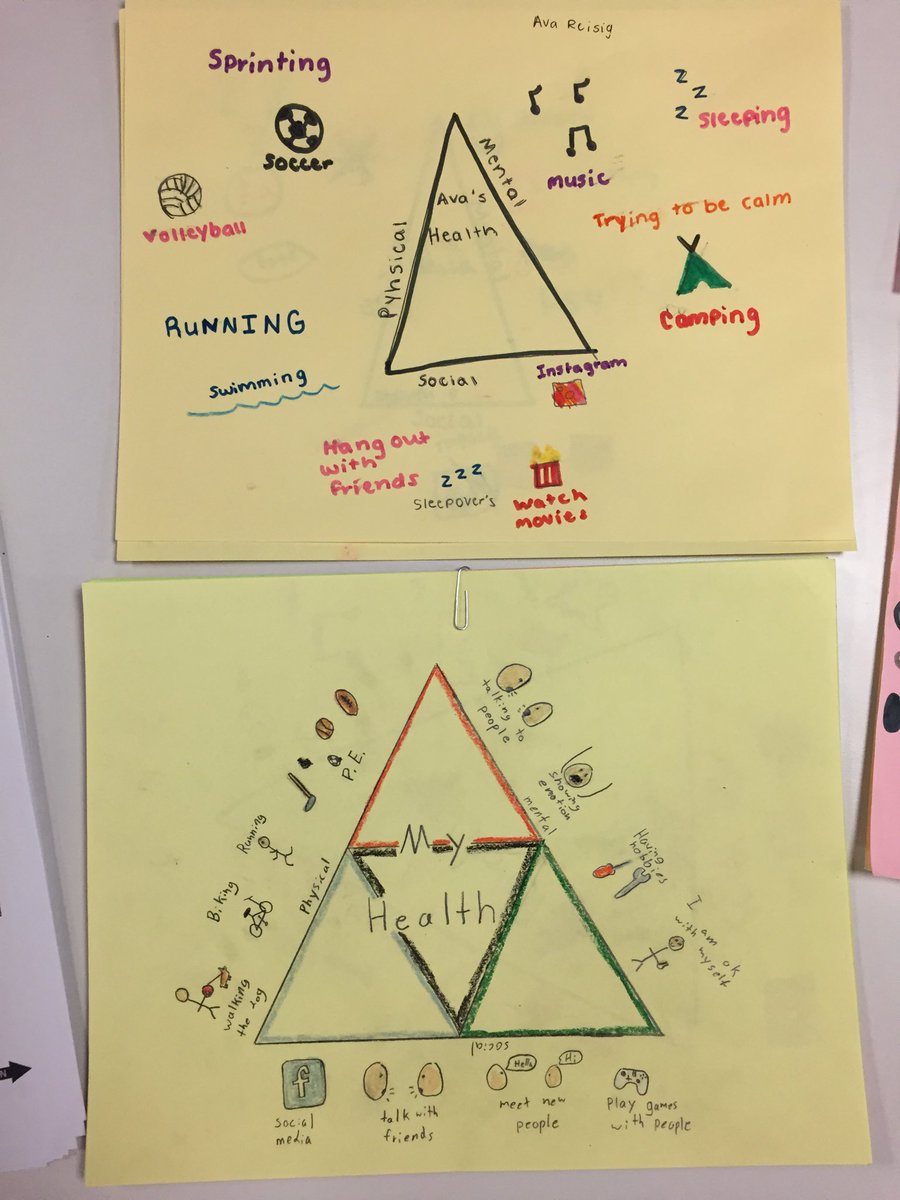 Ava Reisig
Sprinting
soccer
volleyball
RUNNING
swimming
Pyhsical
Mental
Ava's
Health
social
music
Z
Z
Z
Sleeping
Trying to be calm
Camping
Instagram
Hang out
with
friends
z z z
Sleepover's
watch
movies
talking to
people
showing
emotion
mental
Having
hobbies
I am ok
with myself
P.E.
Running
Biking
walking
the dog
Physical
My
Health
social
f
social
media
talk with
friends
Hello
Hi
meet new
people
Play games
with people
N